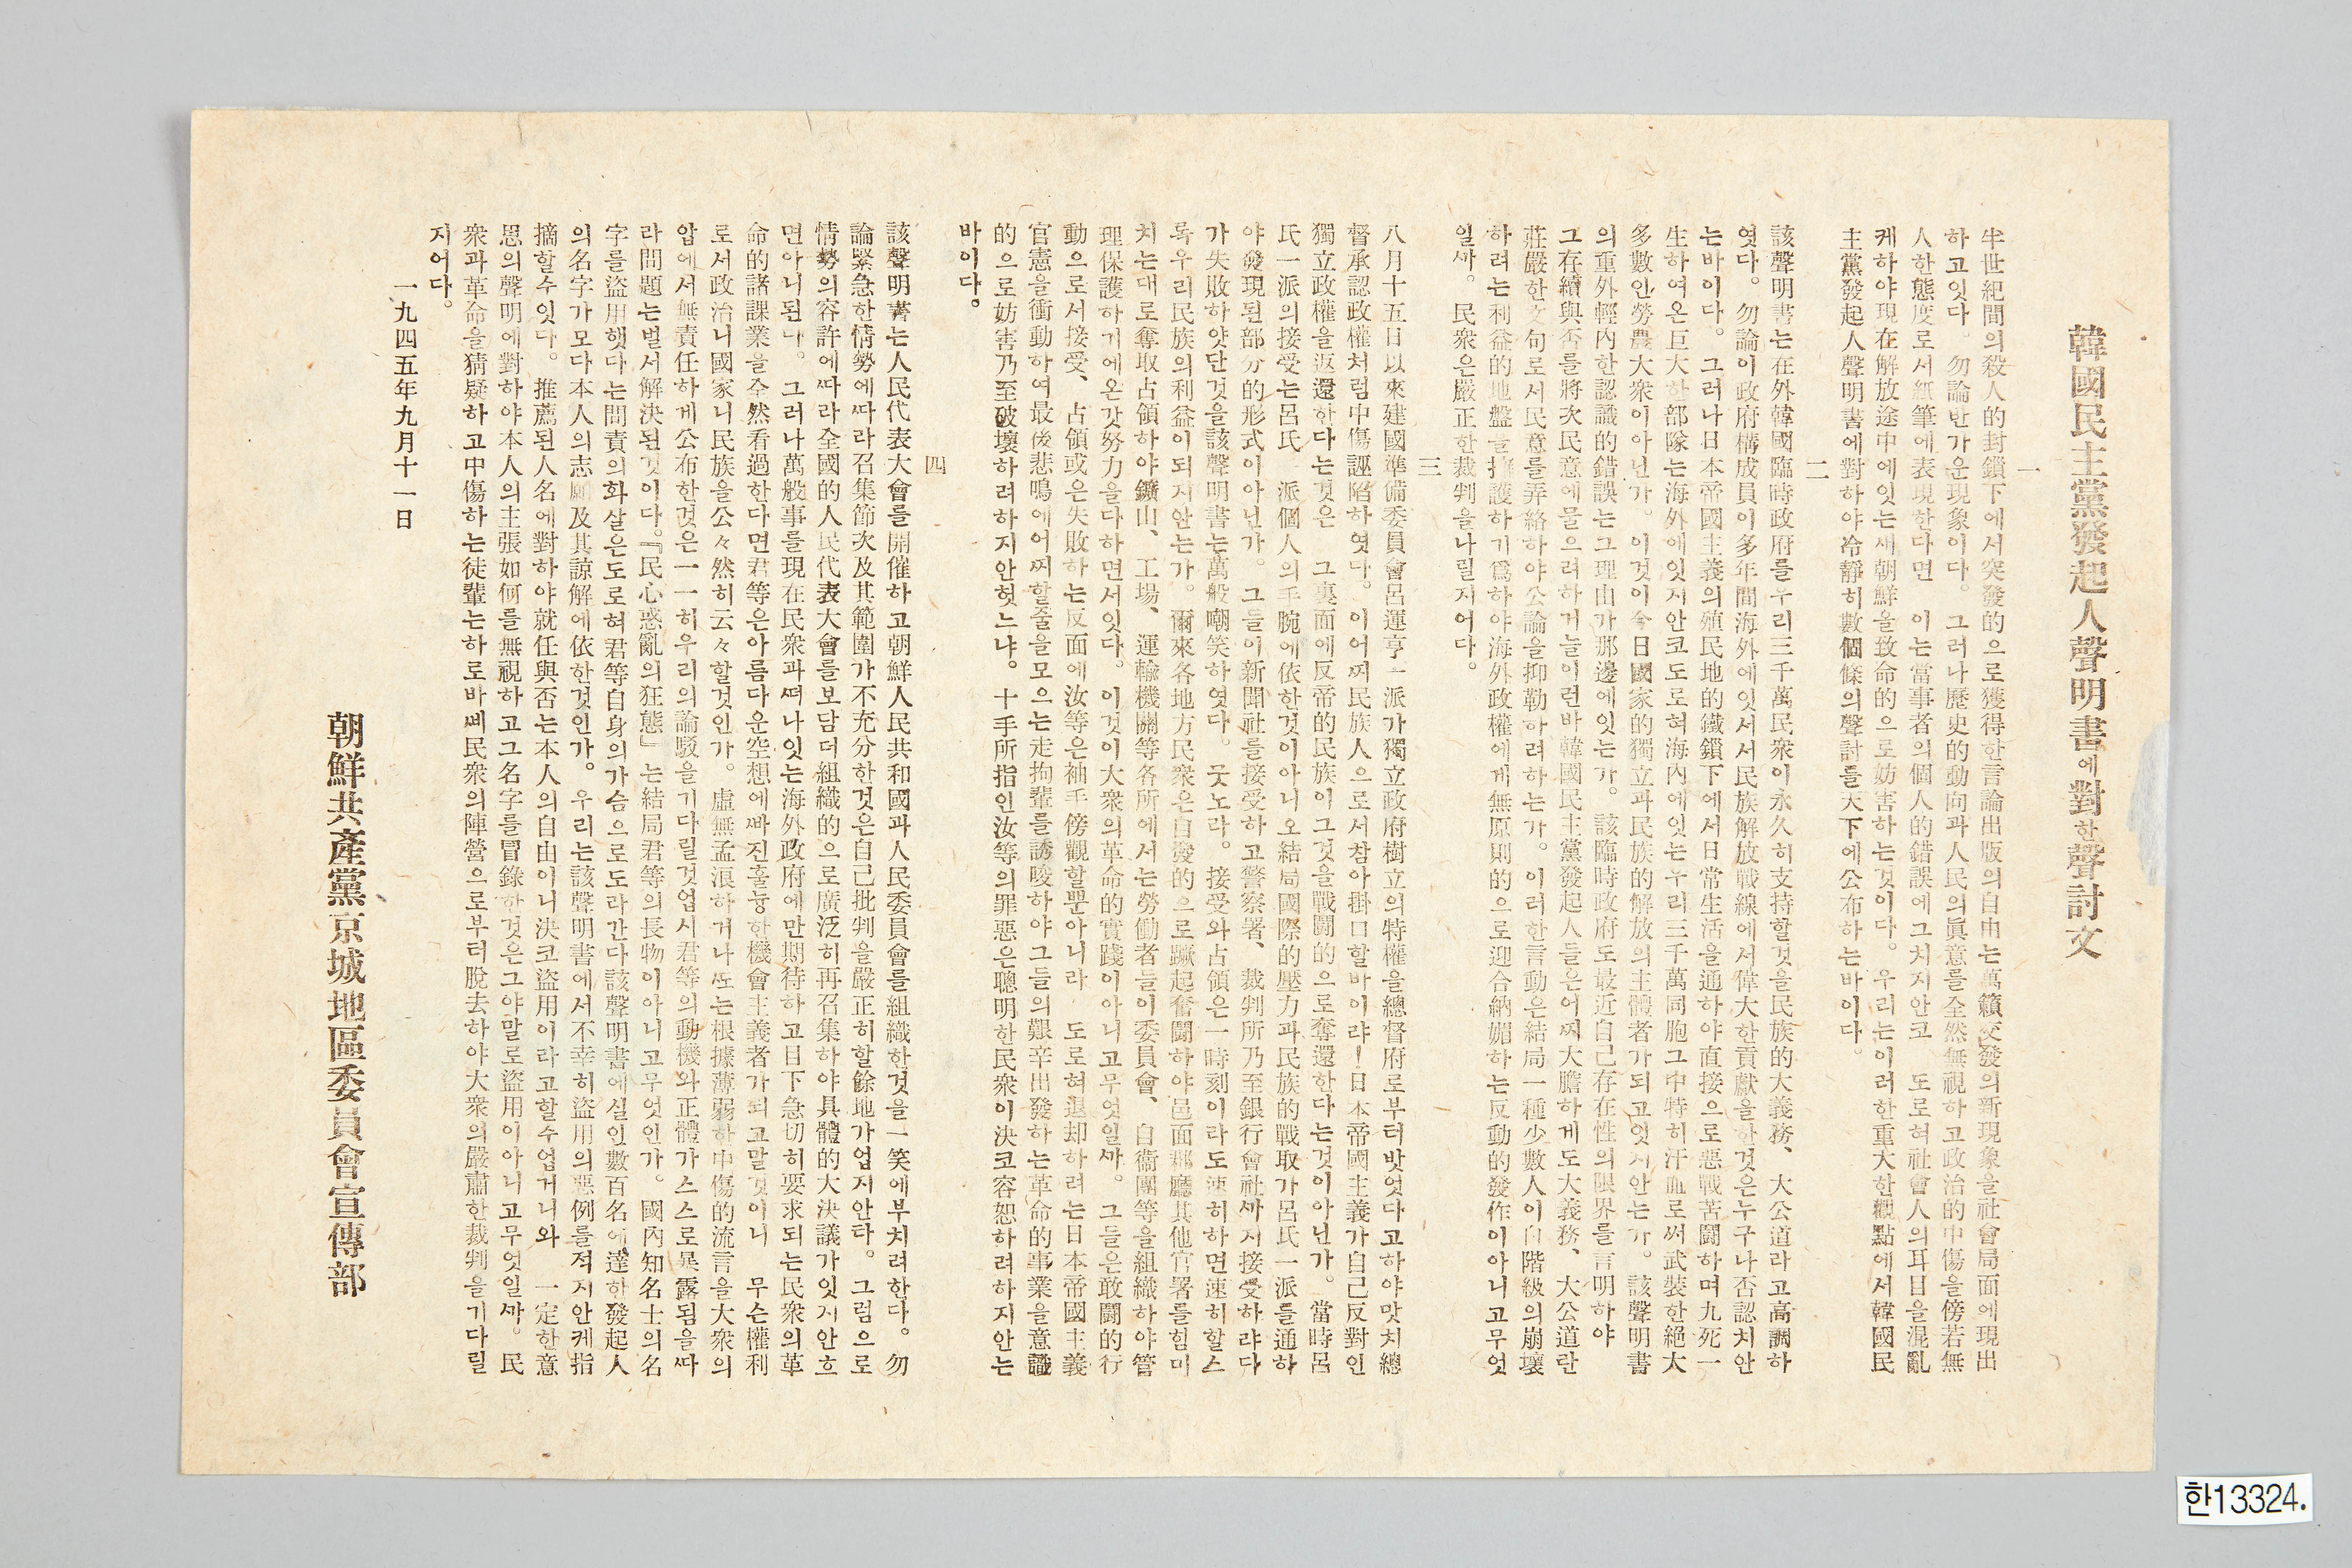 韓國民主黨發起人聲明書에對한聲討文
一
半世紀間의殺人的封鎖下에서突發的으로獲得한言論出版의自由는萬籟交發의新現象을社會局面에現出
하고잇다。勿論반가운現象이다。그러나歷史的動向과人民의眞意를全然無視하고政治的中傷을傍若無
人한態度로서紙筆에表現한다면 이는當事者의個人的錯誤에그치지안코 도로혀社會人의耳目을混亂
케하야現在解放途中에잇는새朝鮮을致命的으로妨害하는것이다。우리는이러한重大한觀點에서韓國民
主黨發起人聲明書에對하야冷靜히數個條의聲討를天下에公布하는바이다。
二
該聲明書는在外韓國臨時政府를우리三千萬民衆이永久히支持할것을民族的大義務、大公道라고高調하
엿다。勿論이政府構成員이多年間海外에잇서서民族解放戰線에서偉大한貢獻을한것은누구나否認치안
는바이다。그러나日本帝國主義의殖民地的鐵鎖下에서日常生活을通하야直接으로惡戰苦鬪하며九死一
生하여온巨大한部隊는海外에잇지안코도로혀海內에잇는우리三千萬同胞그中特히汗血로써武裝한絕大
多數인勞農大衆이아닌가。이것이今日國家的獨立과民族的解放의主體者가되고잇지안는가。該聲明書
의重外輕內한認識的錯誤는그理由가那邊에잇는가。該臨時政府도最近自己存在性의限界를言明하야
그存續與否를將次民意에물으려하거늘이런바韓國民主黨發起人들은어찌大膽하게도大義務、大公道란
莊嚴한文句로서民意를弄絡하야公論을抑勒하려하는가。이러한言動은結局一種少數人이自階級의崩壞
하려는利益的地盤을擁護하기爲하야海外政權에게無原則的으로迎合納媚하는反動的發作이아니고무엇
일까。民衆은嚴正한裁判을나릴지어다。
三
八月十五日以來建國準備委員會呂運亨一派가獨立政府樹立의特權을總督府로부터밧엇다고하야맛치總
督承認政權처럼中傷誣陷하엿다。이어찌民族人으로서참아掛口할바이랴!日本帝國主義가自己反對인
獨立政權을返還한다는것은 그裏面에反帝的民族이그것을戰鬪的으로奪還한다는것이아닌가。當時呂
氏一派의接受는呂氏一派個人의手腕에依한것이아니오結局國際的壓力과民族的戰取가呂氏一派를通하
야發現된部分的形式이아닌가。그들이新聞社를接受하고警察署、裁判所乃至銀行會社까지接受하랴다
가失敗하얏단것을該聲明書는萬般嘲笑하엿다。뭇노라。接受와占領은一時刻이라도速히하면速히할스
록우리民族의利益이되지안는가。爾來各地方民衆은自發的으로蹶起奮鬪하야邑面郡廳其他官署를힘미
치는대로奪取占領하야鑛山、工場、運輸機關等各所에서는勞働者들이委員會、自衞團等을組織하야管
理保護하기에온갓努力을다하면서잇다。이것이大衆의革命的實踐이아니고무엇일까。그들은敢鬪的行
動으로서接受、占領或은失敗하는反面에汝等은袖手傍觀할뿐아니라 도로혀退却하려는日本帝國主義
官憲을衝動하여最後悲鳴에어찌할줄을모으는走狗輩를誘唆하야그들의艱辛出發하는革命的事業을意識
的으로妨害乃至破壞하려하지안헛느냐。十手所指인汝等의罪惡은聰明한民衆이決코容恕하려하지안는
바이다。
四
該聲明書는人民代表大會를開催하고朝鮮人民共和國과人民委員會를組織한것을一笑에부치려한다。勿
論緊急한情勢에따라召集節次及其範圍가不充分한것은自己批判을嚴正히할餘地가업지안타。그럼으로
情勢의容許에따라全國的人民代表大會를보담더組織的으로廣泛히再召集하야具體的大決議가잇지안흐
면아니된다。그러나萬般事를現在民衆과떠나잇는海外政府에만期待하고目下急切히要求되는民衆의革
命的諸課業을全然看過한다면君等은아름다운空想에빠진훌늉한機會主義者가되고말것이니 무슨權利
로서政治니國家니民族을公々然히云々할것인가。虛無孟浪하거나또는根據薄弱한中傷的流言을大衆의
압에서無責任하게公布한것은一一히우리의論駁을기다릴것업시君等의動機와正體가스스로暴露됨을따
라問題는벌서解決된것이다。『民心惑亂의狂態』는結局君等의長物이아니고무엇인가。國內知名士의名
字를盜用햇다는問責의화살은도로혀君等自身의가슴으로도라간다該聲明書에실인數百名에達한發起人
의名字가모다本人의志願及其諒解에依한것인가。우리는該聲明書에서不幸히盜用의惡例를적지안케指
摘할수잇다。推薦된人名에對하야就任與否는本人의自由이니決코盜用이라고할수업거니와 一定한意
思의聲明에對하야本人의主張如何를無視하고그名字를冒錄한것은그야말로盜用이아니고무엇일까。民
衆과革命을猜疑하고中傷하는徒輩는하로바삐民衆의陣營으로부터脫去하야大衆의嚴肅한裁判을기다릴
지어다。
一九四五年九月十一日
朝鮮共產黨京城地區委員會宣傳部
한13324.